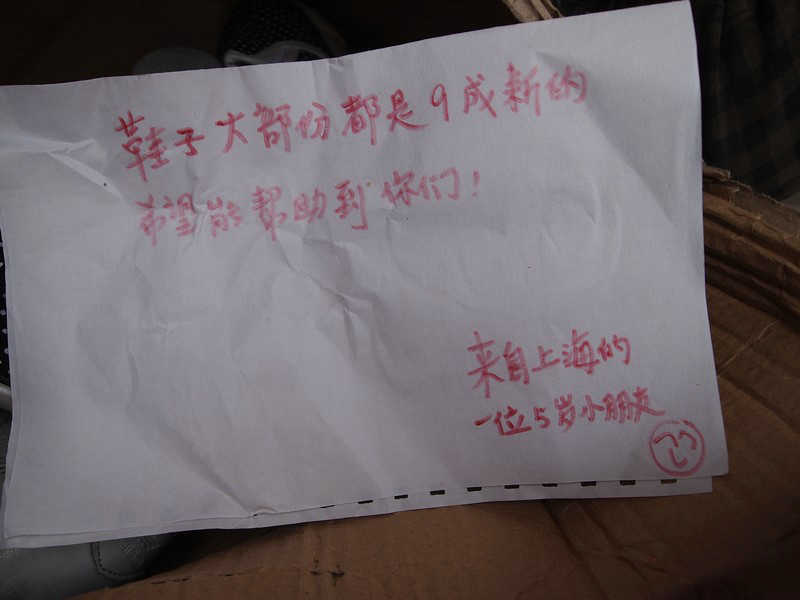 鞋子大部份都是9成新的
希望能帮助到你们!
来自上海的
一位5岁小朋友